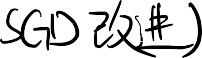 SGD改进)